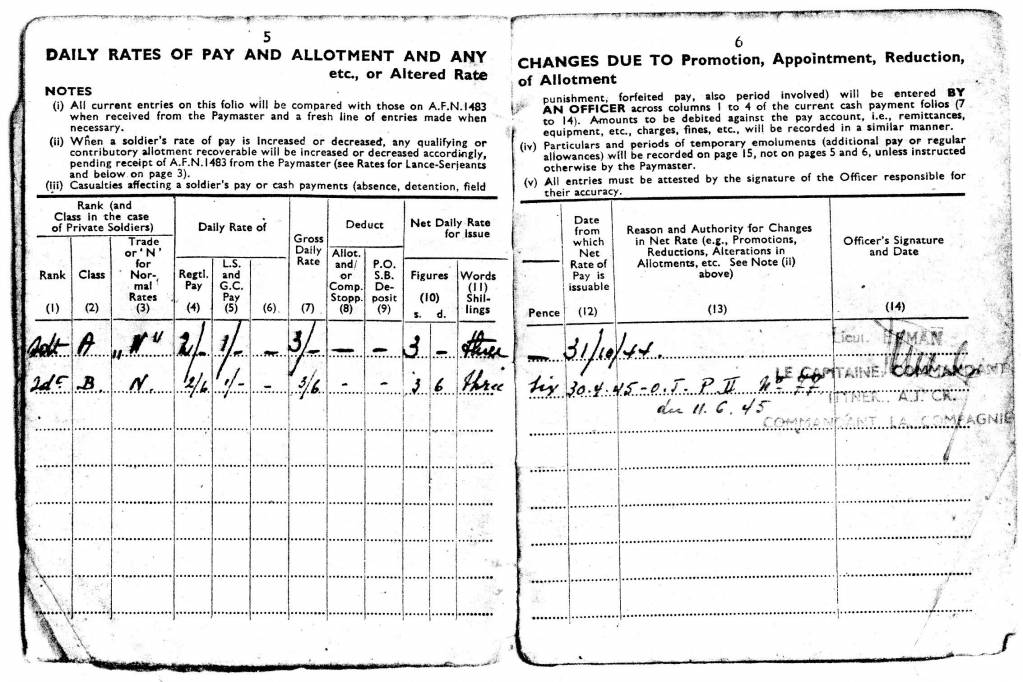 5
DAILY RATES OF PAY AND ALLOTMENT AND ANY
etc., or Altered Rate
NOTES
(i) All current entries on this folio will be compared with those on A.F.N.1483
when received from the Paymaster and a fresh line of entries made when
necessary.
(ii) When a soldier's rate of pay is increased or decreased, any qualifying or
contributory allotment recoverable will be increased or decreased accordingly,
pending receipt of A.F.N.1483 from the Paymaster (see Rates for Lance-Serjeants
and below on page 3).
(iii) Casualties affecting a soldier's pay or cash payments (absence, detention, field
Rank (and
Class in the case
of Private Soldiers)
Daily Rate of
Gross
Daily
Rate
Deduct
Net Daily Rate
for issue
Rank
Class
Trade
or 'N'
for
Nor-
mal
Rates
Regtl.
Pay
L.S.
and
G.C.
Pay
Allot.
and/
or
Comp.
Stopp.
P.O.
S.B.
De-
posit
Figures
Words
(11)
Shil-
lings
(1) (2) (3) (4) (5) (6) (7) (8) (9) (10)
s. d.
A "N" 2/- 1/- - 3/- - - 3 - three
B. N. 2/6 1/- - 3/6 - - 3 6 three
6
CHANGES DUE TO Promotion, Appointment, Reduction,
of Allotment
punishment, forfeited pay, also period involved) will be entered BY
AN OFFICER across columns 1 to 4 of the current cash payment folios (7
to 14). Amounts to be debited against the pay account, i.e., remittances,
equipment, etc., charges, fines, etc., will be recorded in a similar manner.
(iv) Particulars and periods of temporary emoluments (additional pay or regular
allowances) will be recorded on page 15, not on pages 5 and 6, unless instructed
otherwise by the Paymaster.
(v) All entries must be attested by the signature of the Officer responsible for
their accuracy.
Pence
Date
from
which
Net
Rate of
Pay is
issuable
Reason and Authority for Changes
in Net Rate (e.g., Promotions,
Reductions, Alterations in
Allotments, etc. See Note (ii)
above)
Officer's Signature
and Date
(12) (13) (14)
- 31/10/44.
Lieut.
six 30.4.45 - O.J. P II No
LE CAPITAINE COMMANDANT
du 11.6.45
A.J. CR.
COMMANDANT LA COMPAGNIE